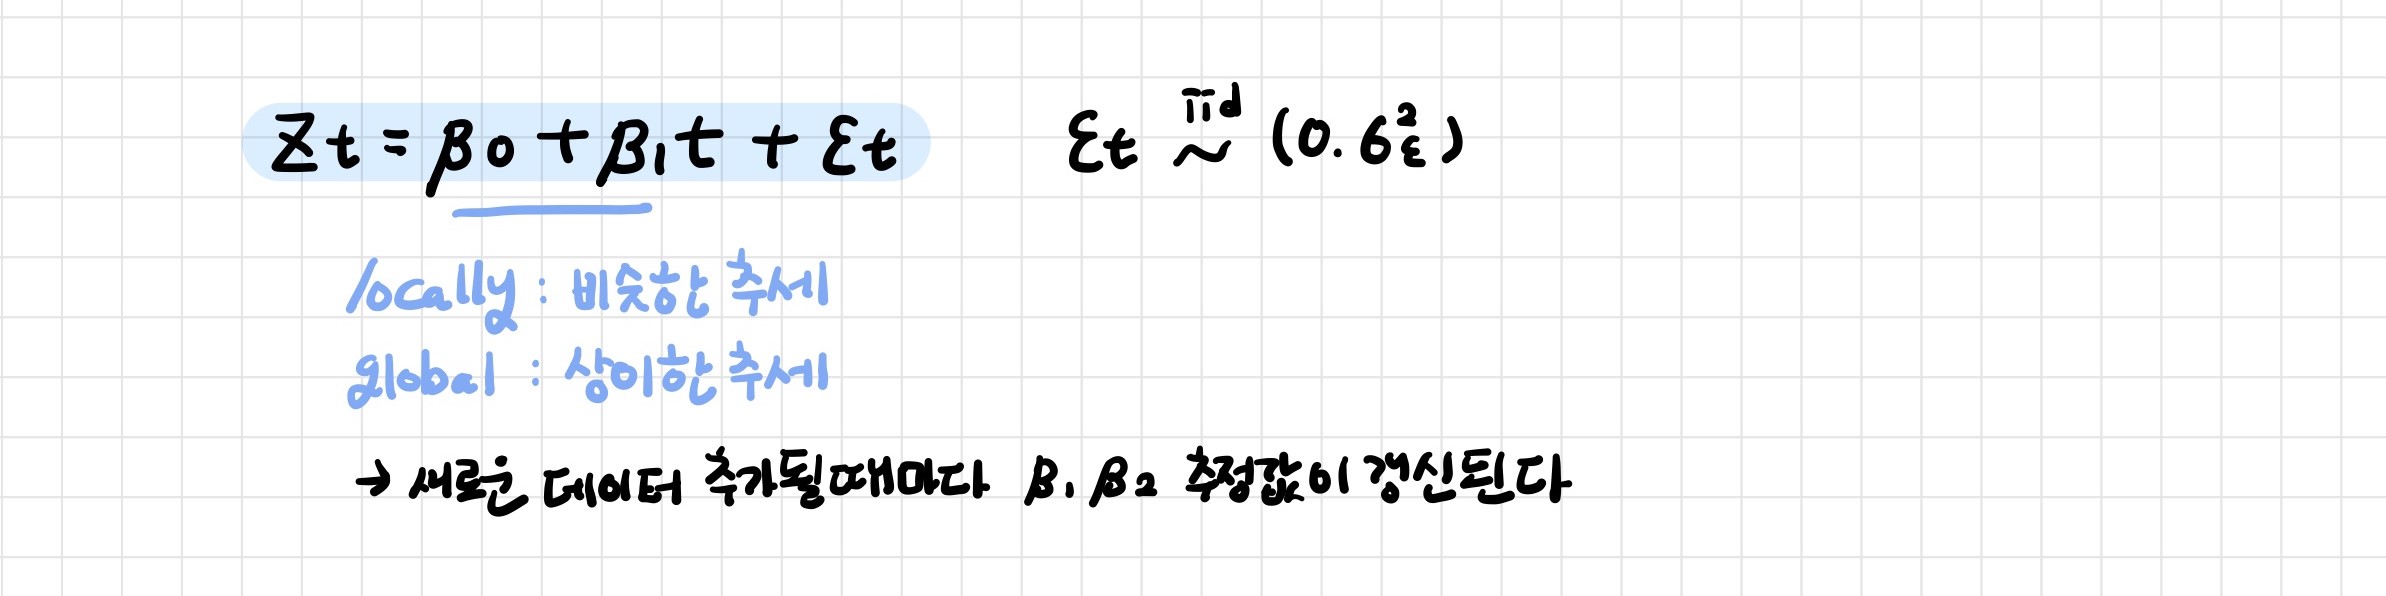 Zt = β0 + β1t + εt    εt iid ~ (0. 6²ε)
locally : 비슷한 추세
global : 상이한 추세
→ 새로운 데이터 추가될때마다 β1 β2 추정값이 갱신된다